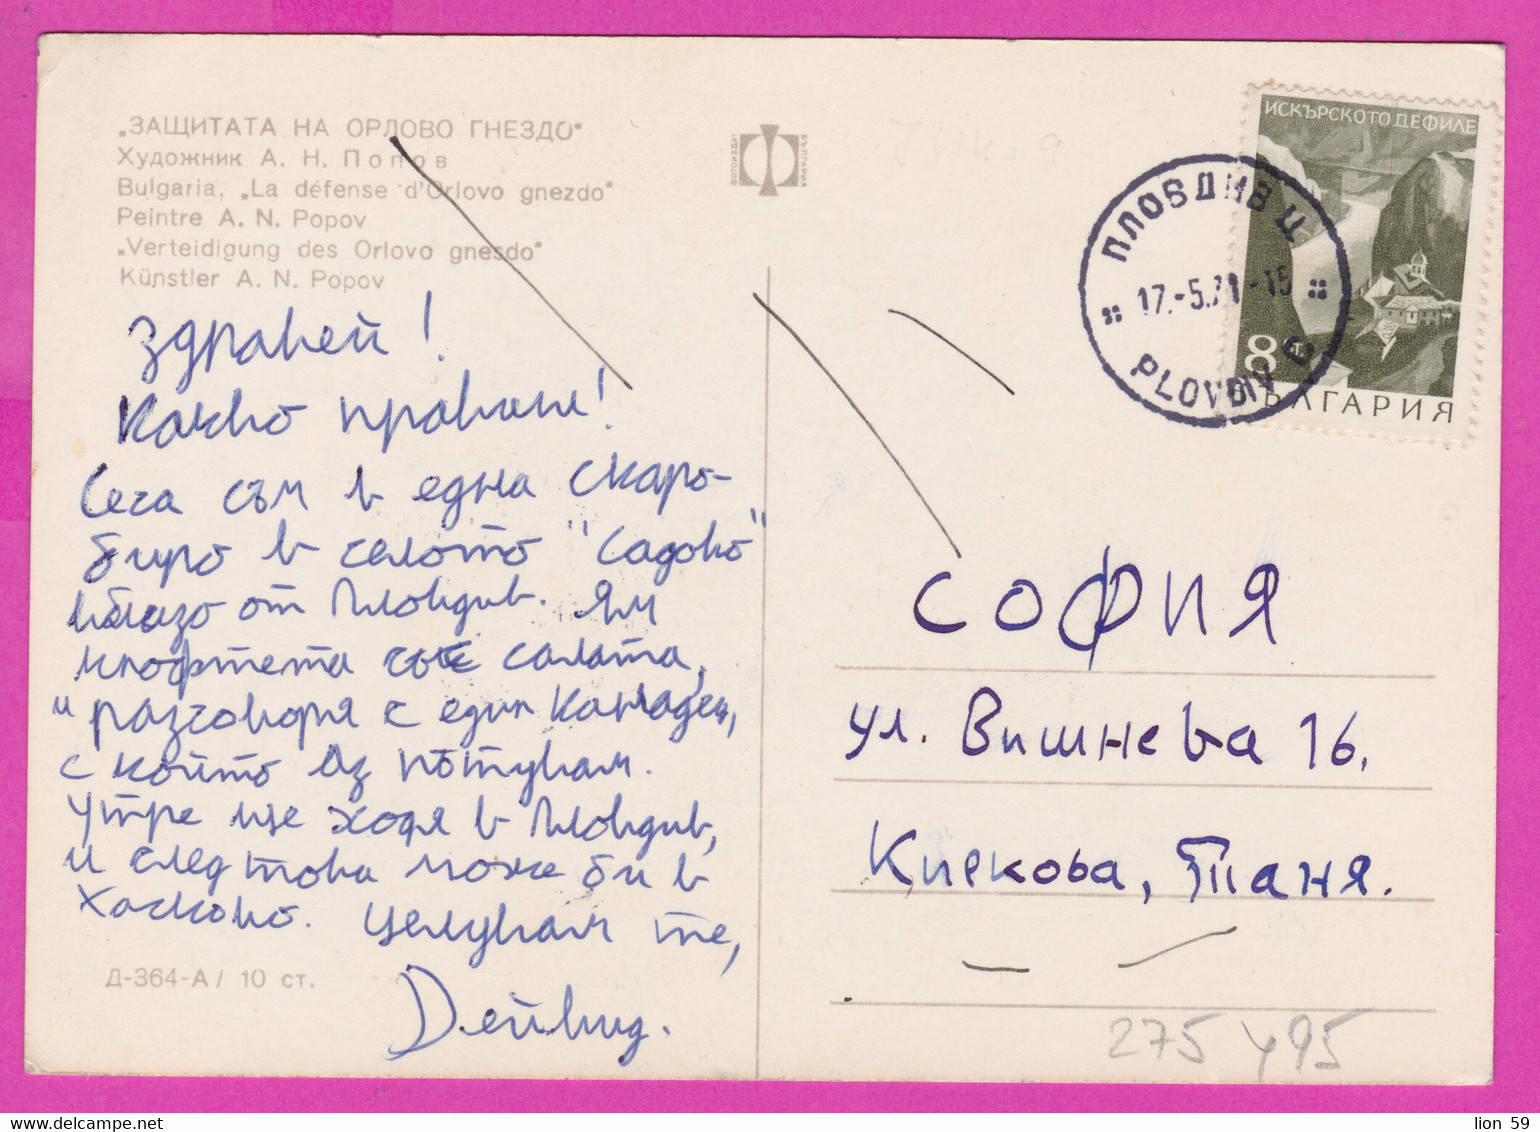 „ЗАЩИТАТА НА ОРЛОВО ГНЕЗДО“
Художник А. Н. Попов
Bulgaria. „La défense d'Orlovo gnezdo“
Peintre A. N. Popov
„Verteidigung des Orlovo gnesdo“
Künstler A. N. Popov
здравей!
Какво правиш!
Сега съм в една скаро-
биро в селото "Садово"
близо от Пловдив. Ям
кюфтета със салата,
и разговоря с един Канадец,
с който аз пътувам.
Утре ще ходя в Пловдив,
и след това може би в
Хасково. Целувам те,
Дейвид.
Д-364-А / 10 ст.
ФОТОИЗДАТ
БЪЛГАРИЯ
ИСКЪРСКОТО ДЕФИЛЕ
8 СТ.
БЪЛГАРИЯ
ПЛОВДИВ Ц
17.-5.71-15
PLOVDIV
СОФИЯ
ул. Вишнева 16,
Киркова, Таня.
275495
lion 59